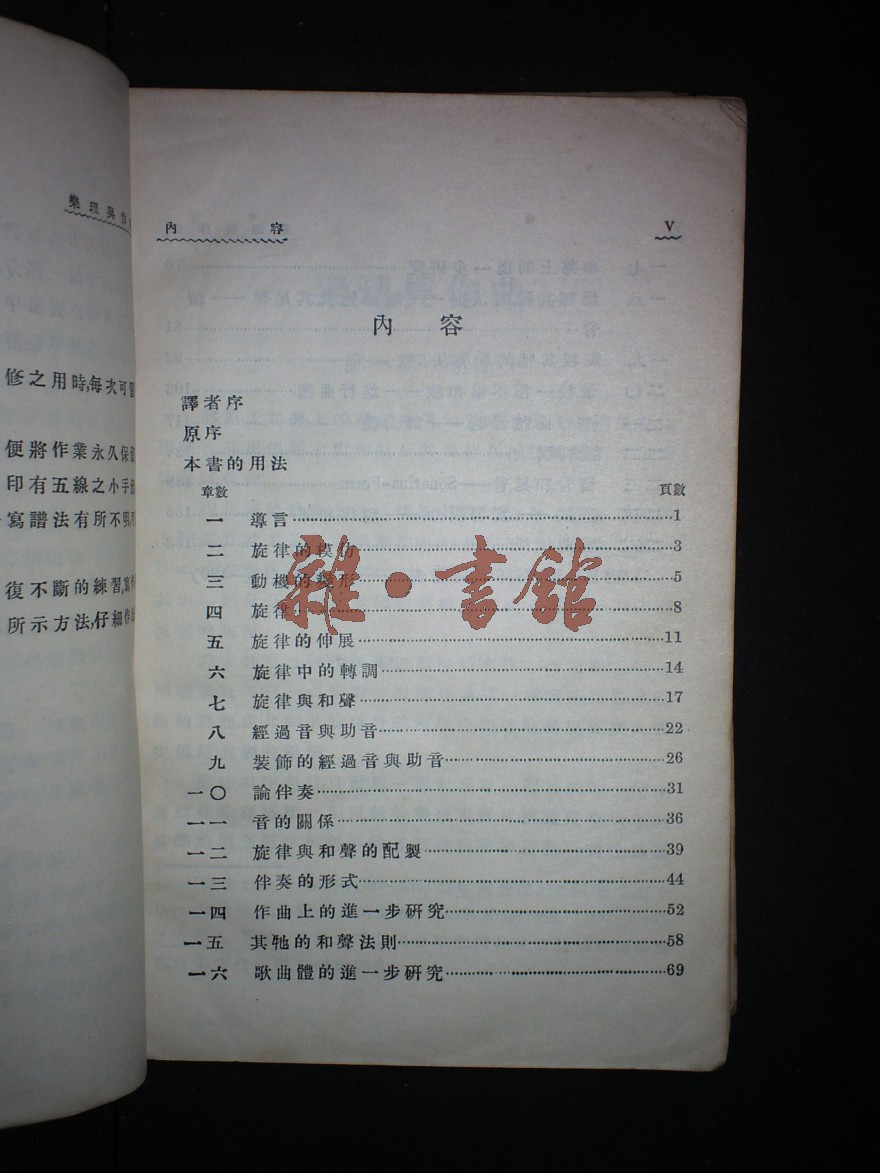 樂理與作
修之用時,每次可習
便將作業永久保
印有五線之小手
寫譜法有所不明
復不斷的練習,寫
所示方法,仔細作
內容 V
內容
譯者序
原序
本書的用法
章數 頁數
一 導言 1
二 旋律的模仿 3
三 動機的變形 5
四 旋律 8
五 旋律的伸展 11
六 旋律中的轉調 14
七 旋律與和聲 17
八 經過音與助音 22
九 裝飾的經過音與助音 26
一〇 論伴奏 31
一一 音的關係 36
一二 旋律與和聲的配製 39
一三 伴奏的形式 44
一四 作曲上的進一步研究 52
一五 其牠的和聲法則 58
一六 歌曲體的進一步研究 69
雜·書館